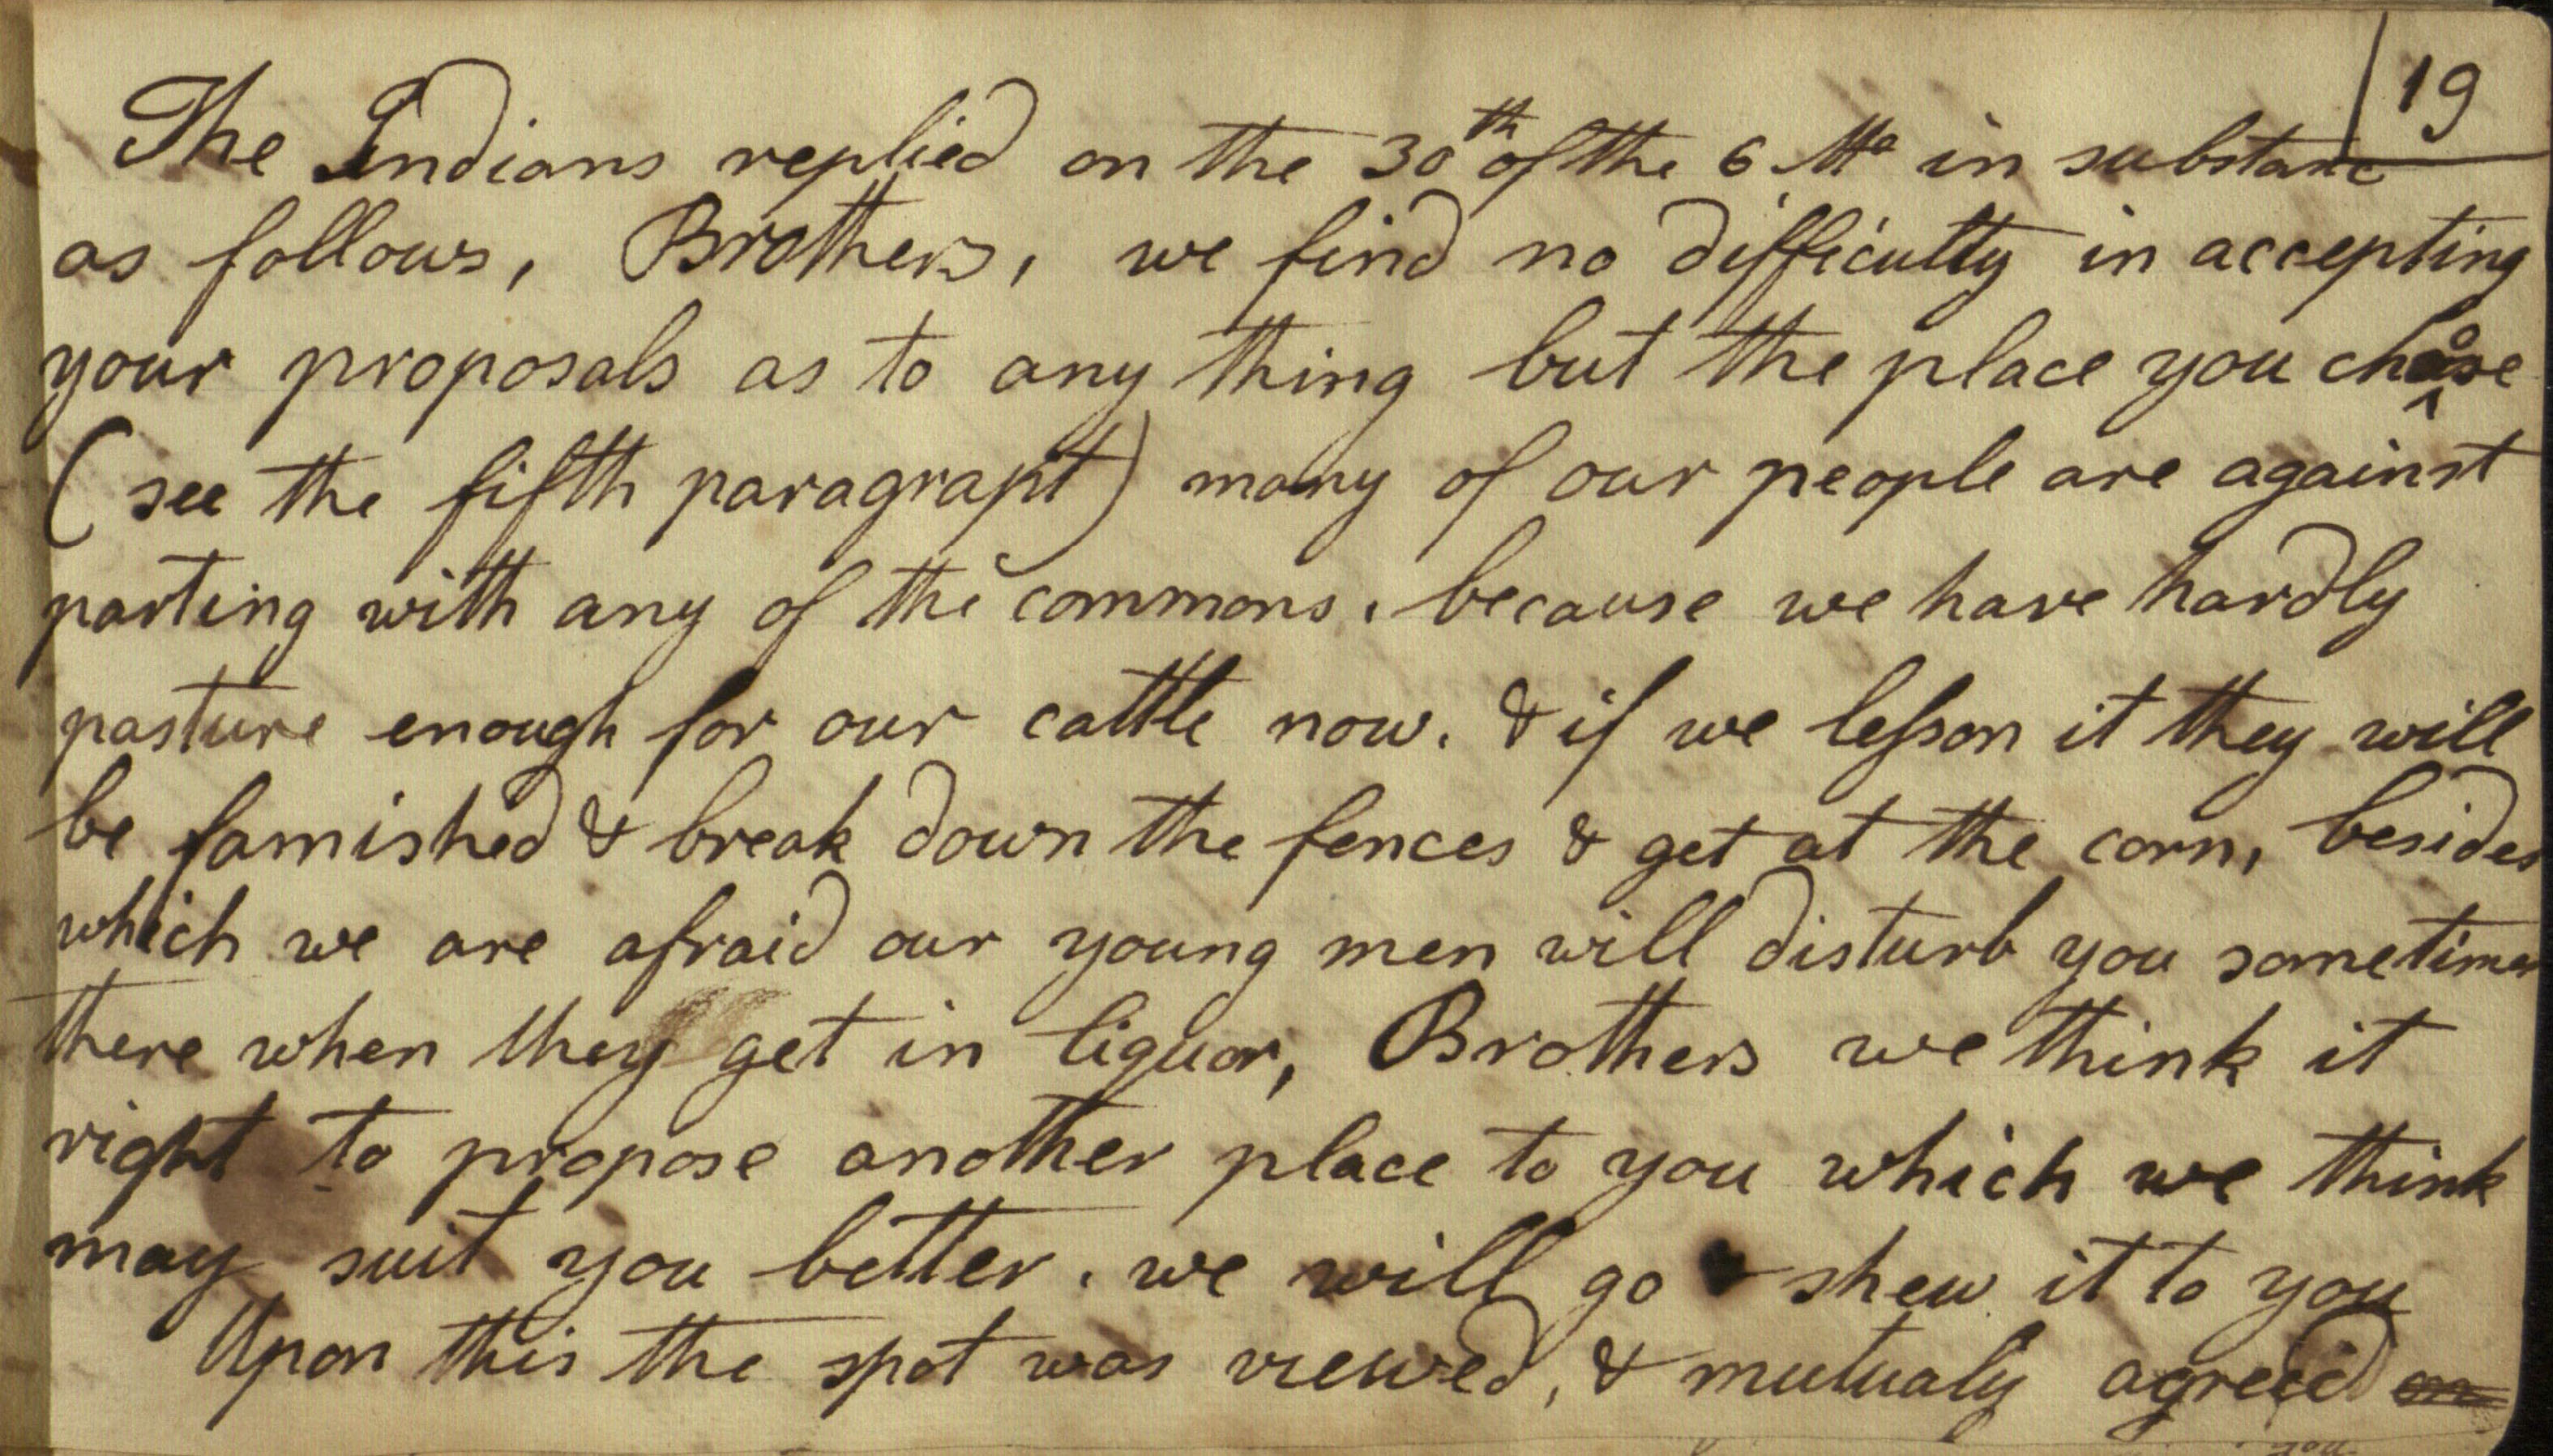 19
The Indians replied on the 30th of the 6 Mo in substance
as follows, Brothers, we find no difficulty in accepting
your proposals as to any thing but the place you chose
(see the fifth paragrapt) many of our people are against
parting with any of the commons, because we have hardly
pasture enough for our cattle now. & if we lesson it they will
be famished & break down the fences & get at the corn, besides
which we are afraid our young men will disturb you sometimes
there when they get in liquor, Brothers we think it
right to propose another place to you which we think
may suit you better. we will go shew it to you
Upon this the spot was viewed, & mutualy agreed